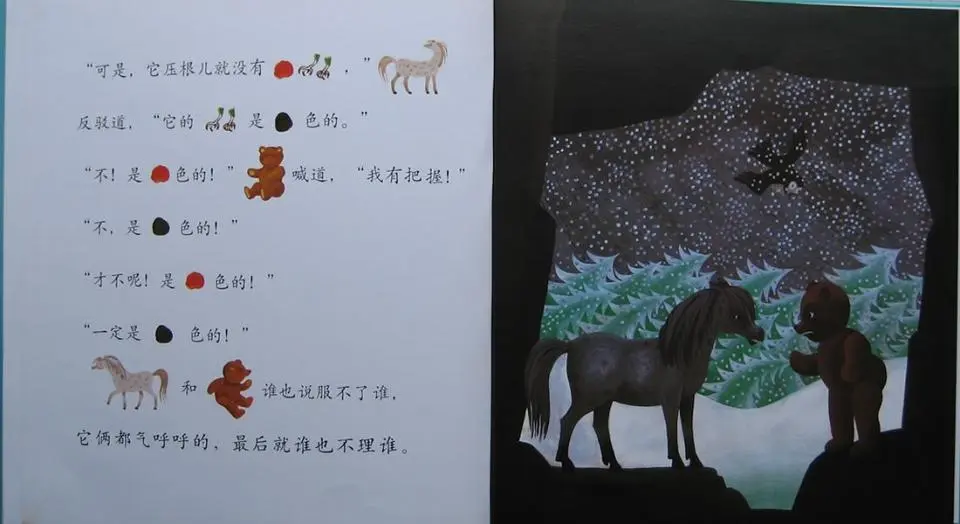 “可是，它压根儿就没有，”
反驳道，“它的是色的。”
“不！是色的！”喊道，“我有把握！”
“不，是色的！”
“才不呢！是色的！”
“一定是色的！”
和谁也说服不了谁，
它俩都气呼呼的，最后就谁也不理谁。